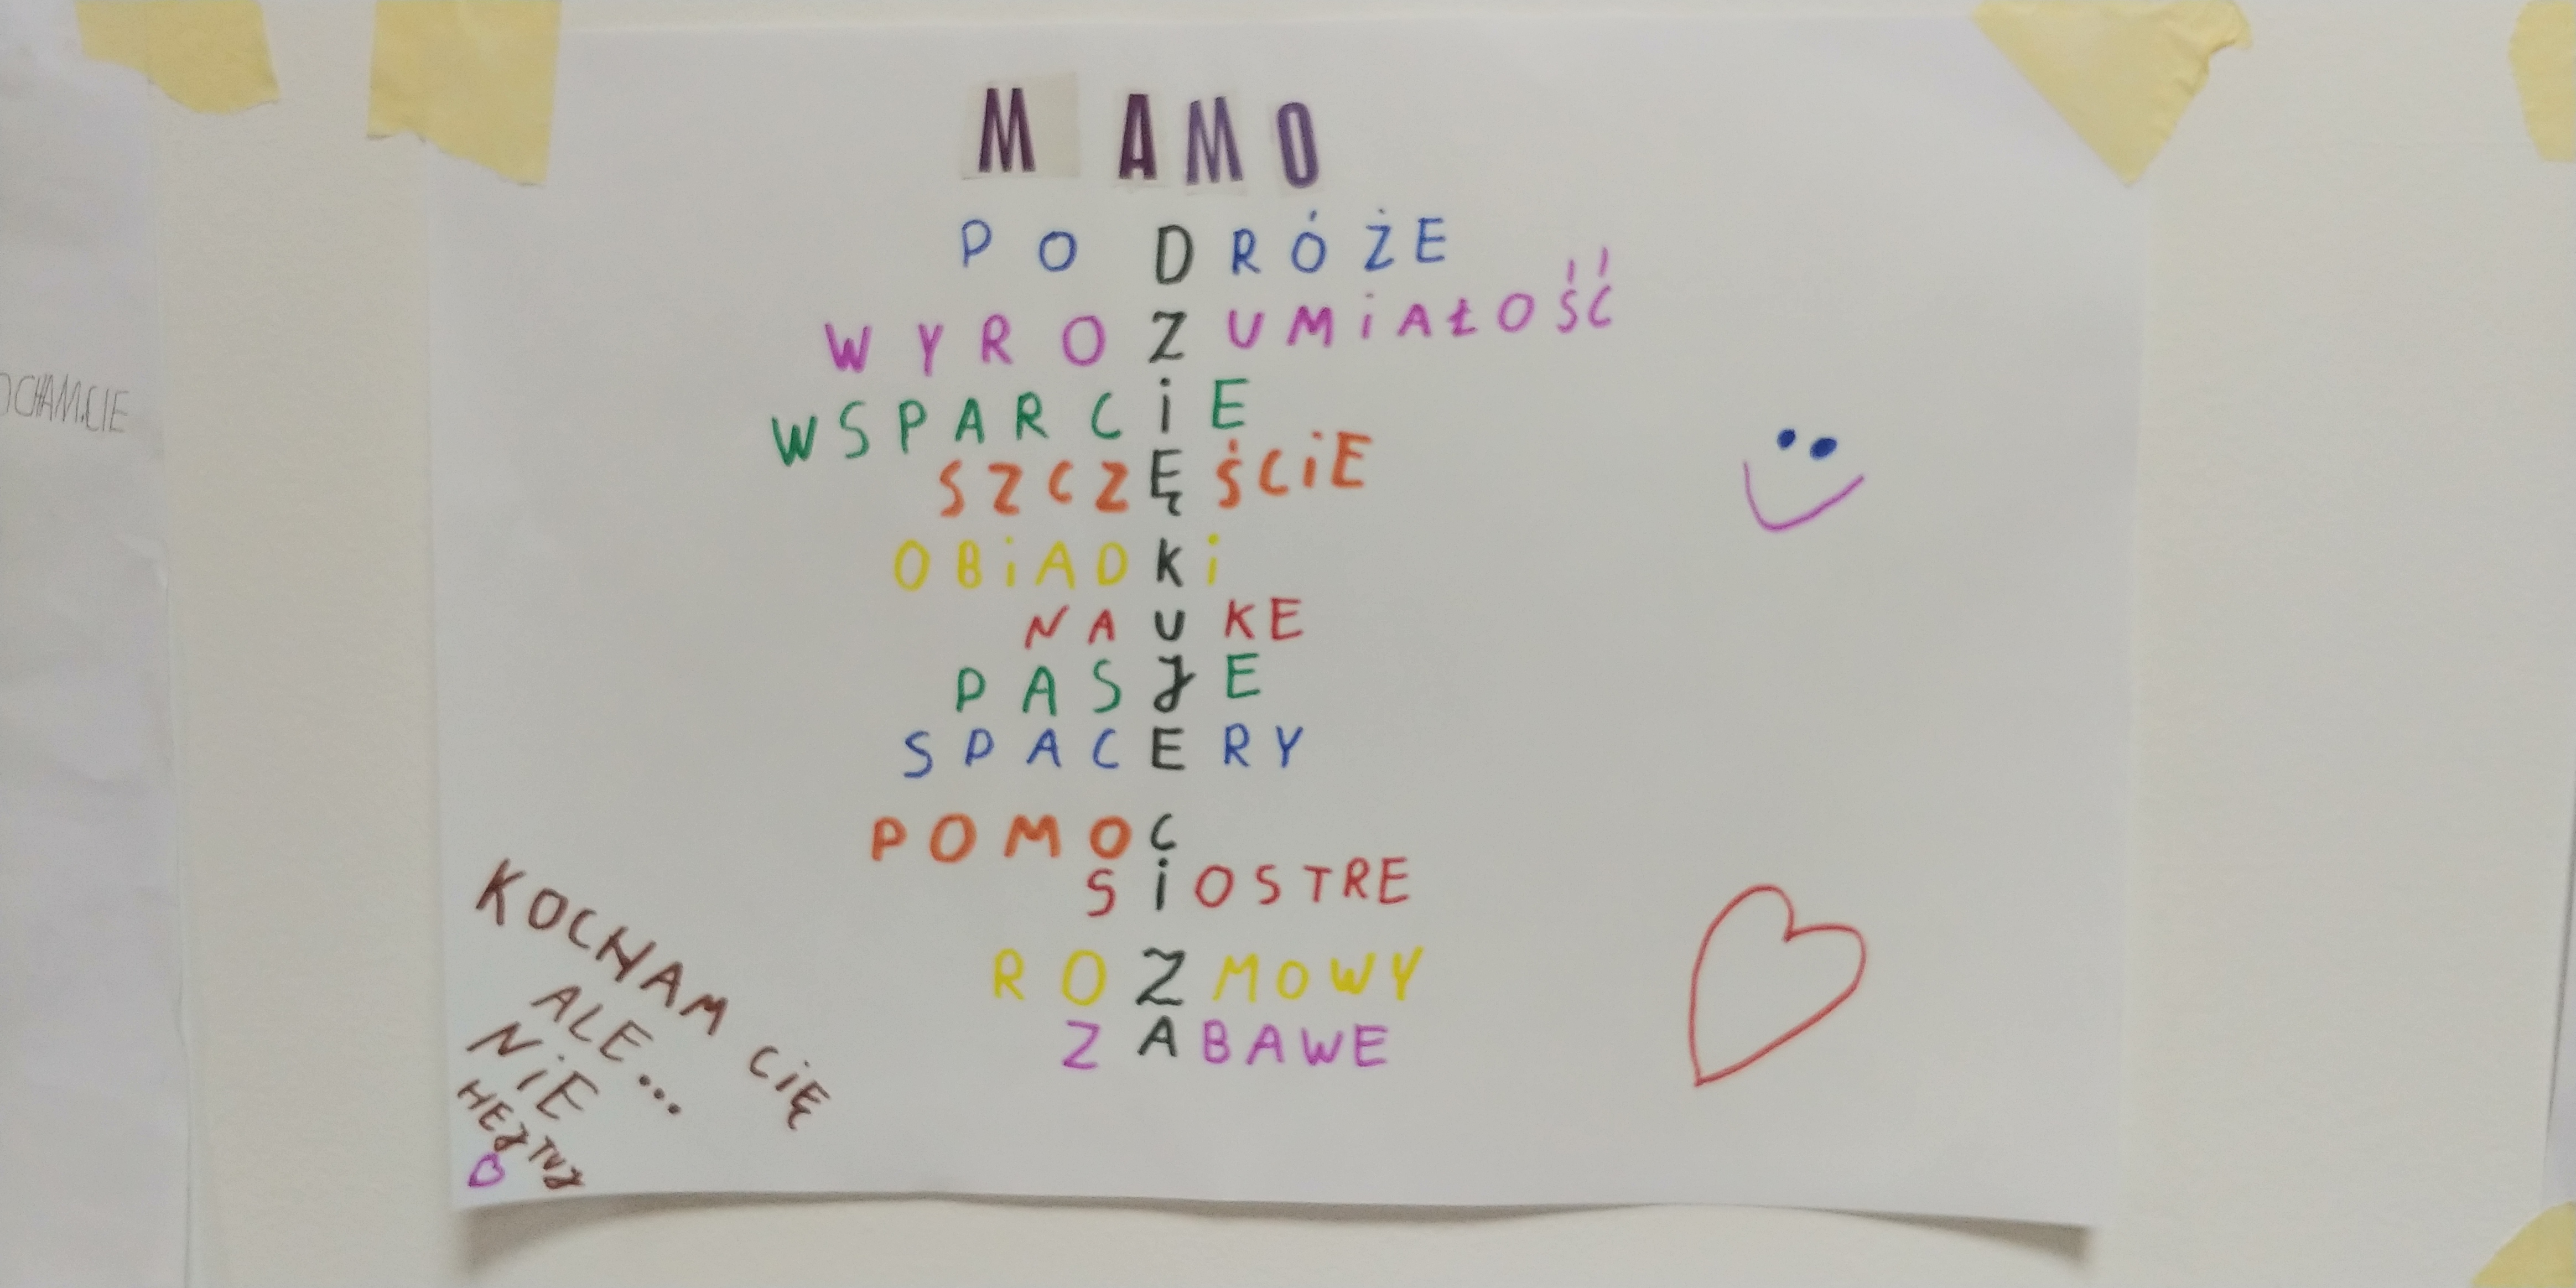 OCHAM.CIE
MAMO
PODRÓŻE
WYROZUMiAŁOŚĆ
WSPARCiE
SZCZĘŚCiE
OBiADKi
NAUKE
PASJE
SPACERY
POMOC
SiOSTRE
ROZMOWY
ZABAWE
KOCHAM CiĘ
ALE...
NiE
HEJTUJ